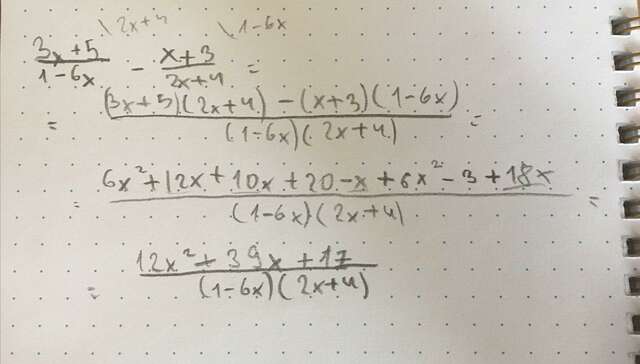 \2x+4 \1-6x
(3x+5)/(1-6x) - (x+3)/(2x+4) =
= ((3x+5)(2x+4) - (x+3)(1-6x))/((1-6x)(2x+4)) =
= (6x²+12x+10x+20-x+6x²-3+18x)/((1-6x)(2x+4)) =
= (12x²+39x+17)/((1-6x)(2x+4))